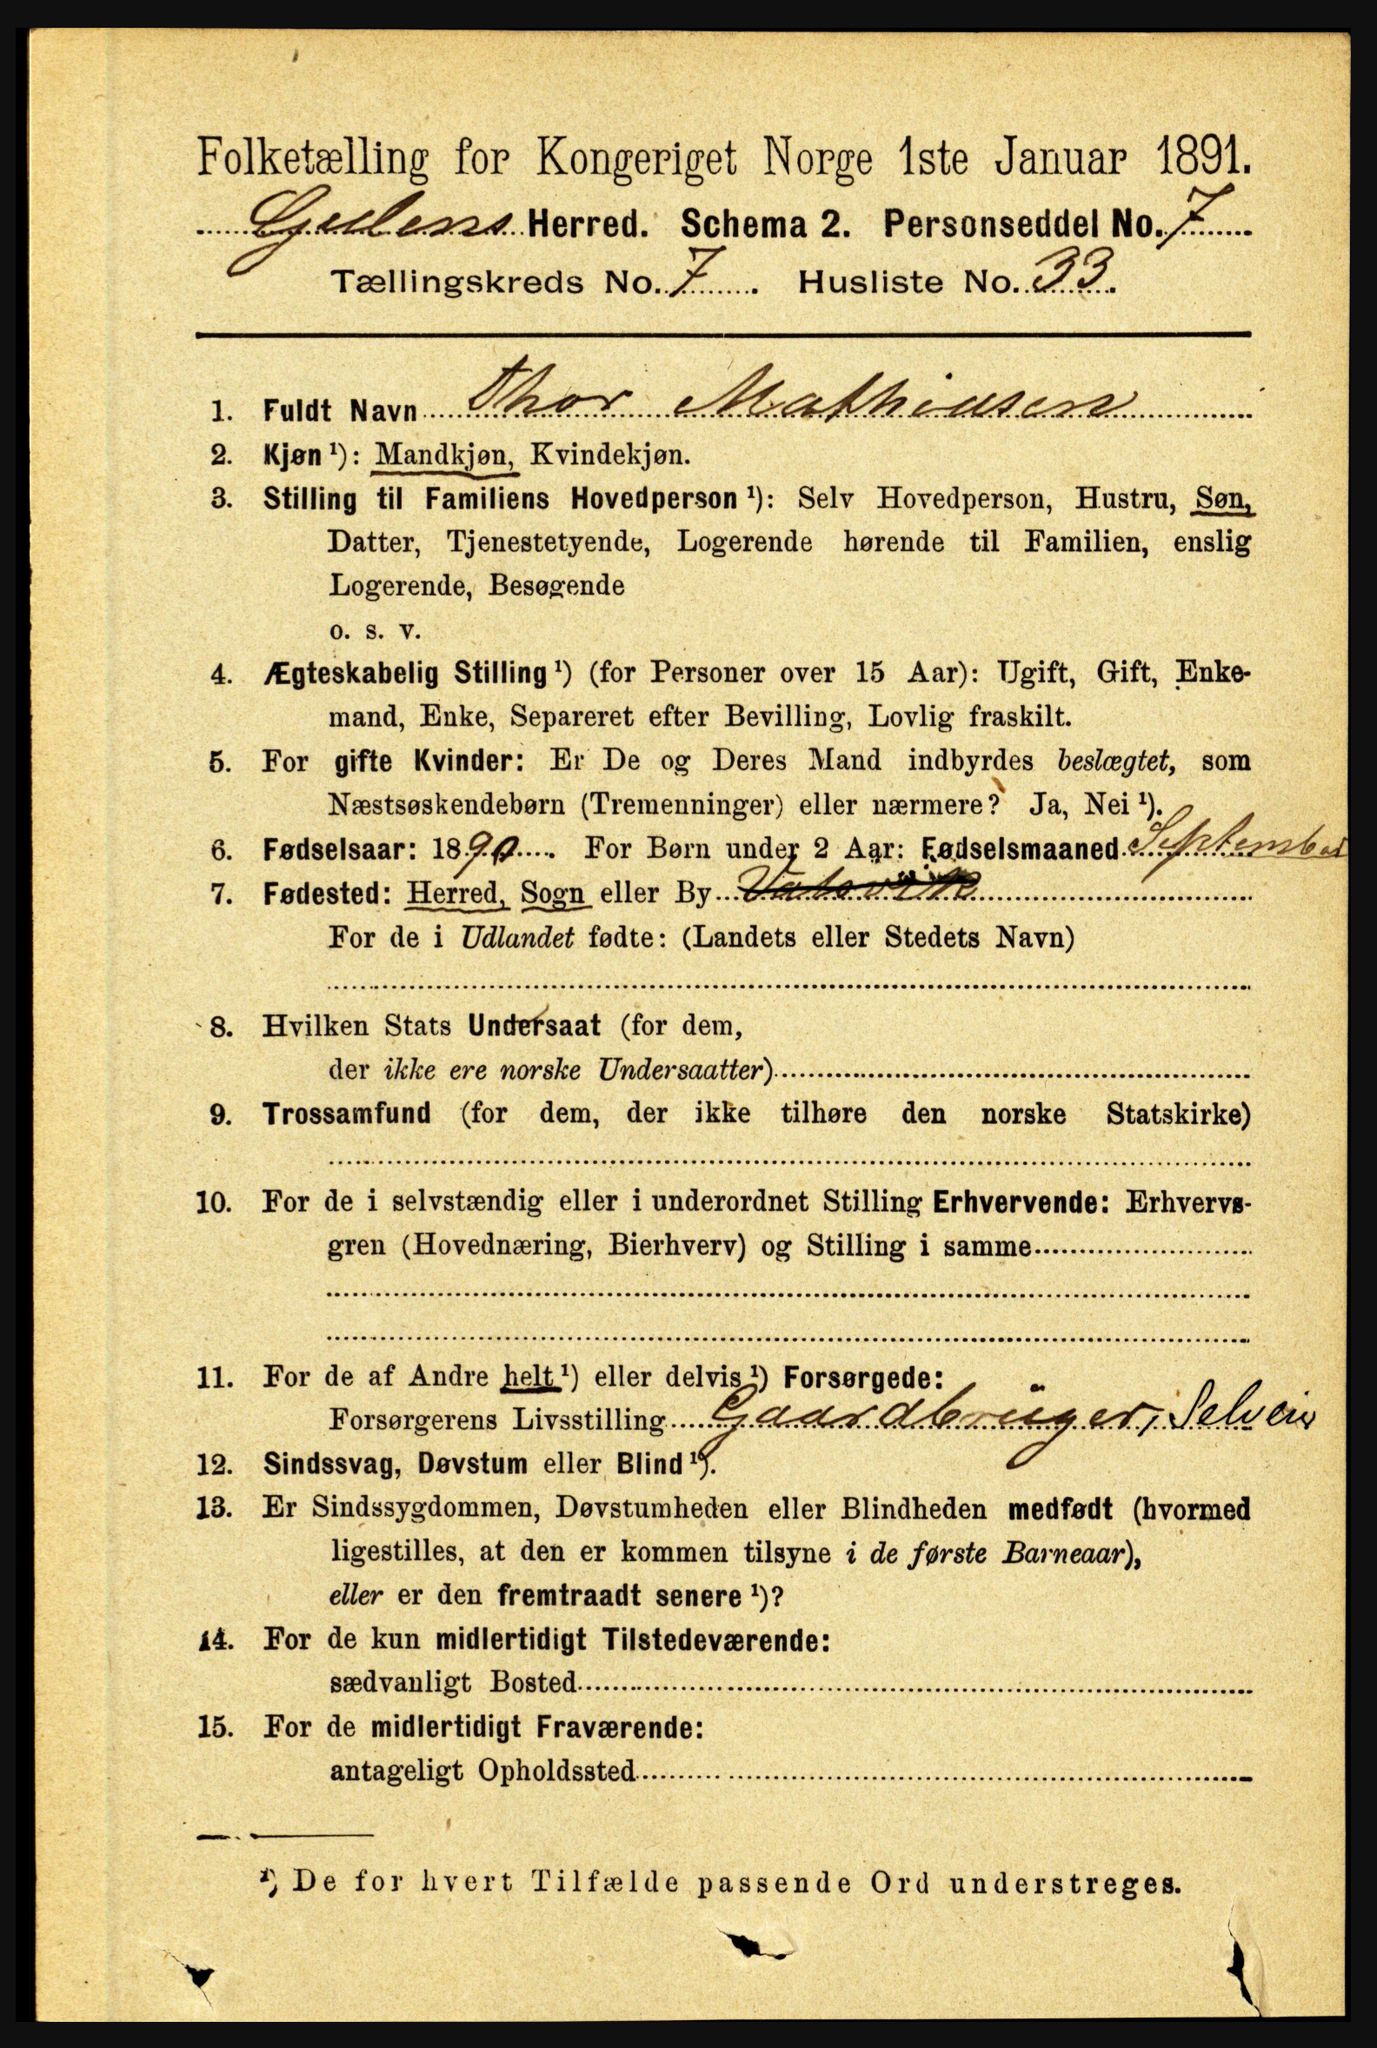 Folketælling for Kongeriget Norge 1ste Januar 1891.
Gulens Herred. Schema 2. Personseddel No. 7
Tællingskreds No. 7. Husliste No. 33.
1. Fuldt Navn Thor Mathiusen
2. Kjøn ¹): Mandkjøn, Kvindekjøn.
3. Stilling til Familiens Hovedperson ¹): Selv Hovedperson, Hustru, Søn,
Datter, Tjenestetyende, Logerende hørende til Familien, enslig
Logerende, Besøgende
o. s. v.
4. Ægteskabelig Stilling ¹) (for Personer over 15 Aar): Ugift, Gift, Enke-
mand, Enke, Separeret efter Bevilling, Lovlig fraskilt.
5. For gifte Kvinder: Er De og Deres Mand indbyrdes beslægtet, som
Næstsøskendebørn (Tremenninger) eller nærmere? Ja, Nei ¹).
6. Fødselsaar: 1890. For Børn under 2 Aar: Fødselsmaaned September
7. Fødested: Herred, Sogn eller By
For de i Udlandet fødte: (Landets eller Stedets Navn)
8. Hvilken Stats Undersaat (for dem,
der ikke ere norske Undersaatter)
9. Trossamfund (for dem, der ikke tilhøre den norske Statskirke)
10. For de i selvstændig eller i underordnet Stilling Erhvervende: Erhvervs-
gren (Hovednæring, Bierhverv) og Stilling i samme
11. For de af Andre helt ¹) eller delvis ¹) Forsørgede:
Forsørgerens Livsstilling Gaardbruger, Selveier
12. Sindssvag, Døvstum eller Blind ¹).
13. Er Sindssygdommen, Døvstumheden eller Blindheden medfødt (hvormed
ligestilles, at den er kommen tilsyne i de første Barneaar),
eller er den fremtraadt senere ¹)?
14. For de kun midlertidigt Tilstedeværende:
sædvanligt Bosted
15. For de midlertidigt Fraværende:
antageligt Opholdssted
¹) De for hvert Tilfælde passende Ord understreges.